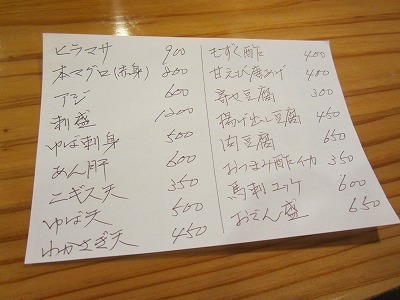 ヒラマサ 900
本マグロ(赤身) 800
アジ 600
刺盛 1200
ゆば刺身 500
あん肝 600
ニギス天 350
ゆば天 500
わかさぎ天 450
もずく酢 400
甘えび唐あげ 400
寄せ豆腐 300
揚げ出し豆腐 450
肉豆腐 650
おつまみ酢イカ 350
馬刺ユッケ 600
おでん盛 650